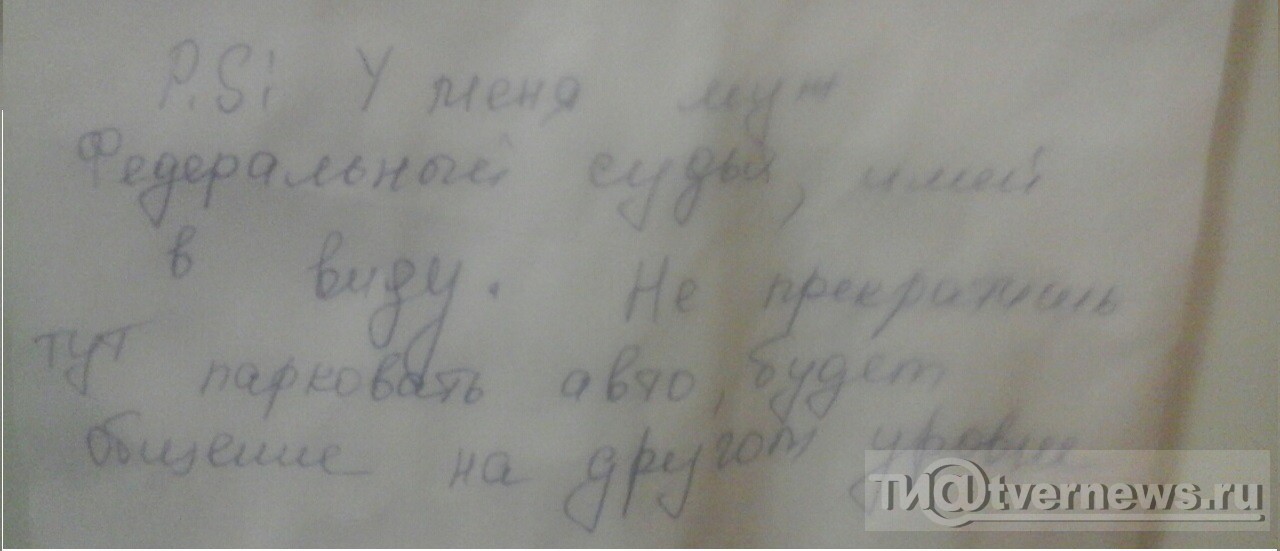 P.S! У меня муж
Федеральный судья, имей
в виду. Не прекратишь
тут парковать авто, будет
общение на другом уровне
ТИ@tvernews.ru